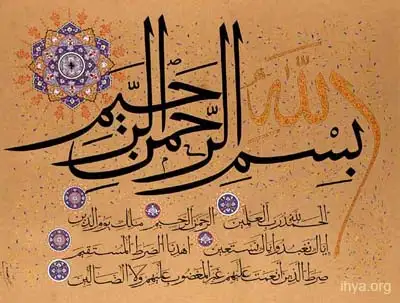 بسم الله الرحمن الرحيم
الحمد لله رب العلمين الرحمن الرحيم ملك يوم الدين
إياك نعبد وإياك نستعين اهدنا الصرط المستقيم
صرط الذين أنعمت عليهم غير المغضوب عليهم ولا الضالين
ihya.org